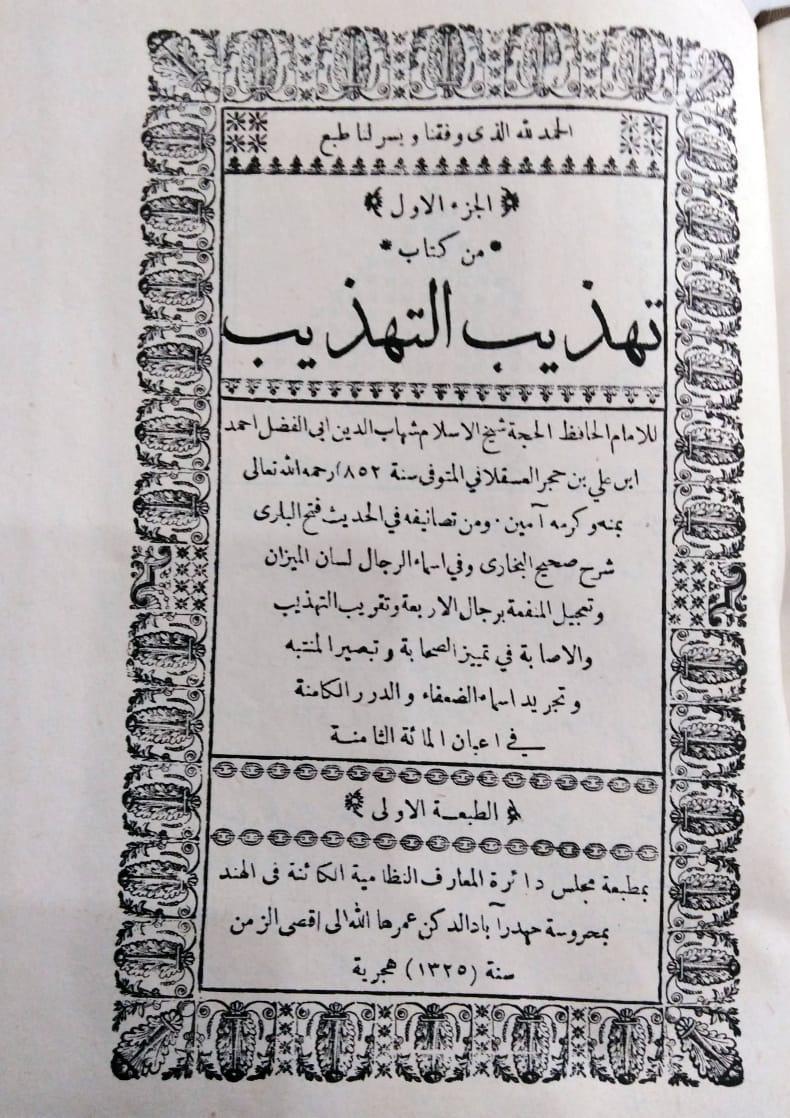 الحمد لله الذى وفقنا ويسر لنا طبع
الجزء الاول
من كتاب
تهذيب التهذيب
للامام الحافظ الحجة شيخ الاسلام شهاب الدين ابى الفضل احمد
ابن علي بن حجر العسقلاني المتوفى سنة ٨٥٢) رحمه الله تعالى
بمنه وكرمه آمين · ومن تصانيفه في الحديث فتح البارى
شرح صحيح البخارى وفي اسماء الرجال لسان الميزان
وتعجيل المنفعة برجال الاربعة وتقريب التهذيب
والاصابة في تمييز الصحابة وتبصير المنتبه
وتجريد اسماء الضعفاء والدرر الكامنة
في اعيان المائة الثامنة
الطبعة الاولى
بمطبعة مجلس دائرة المعارف النظامية الكائنة فى الهند
بمحروسة حيدرآباد الدكن عمرها الله الى اقصى الزمن
سنة (١٣٢٥) هجرية